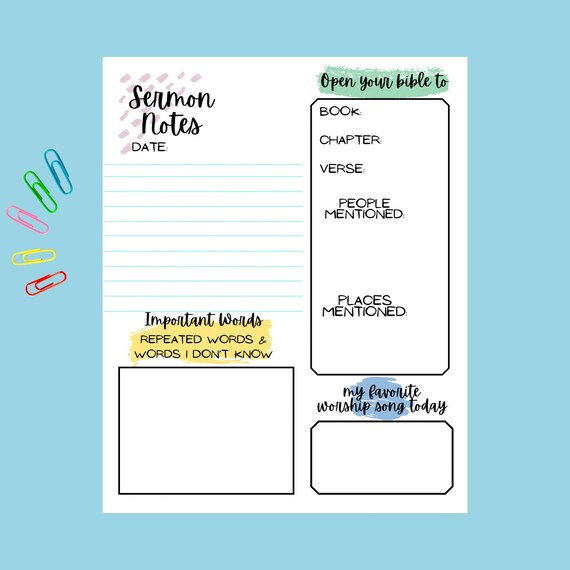 Sermon
Notes
DATE:
Open your bible to
BOOK:
CHAPTER:
VERSE:
PEOPLE
MENTIONED:
PLACES
MENTIONED:
Important Words
REPEATED WORDS &
WORDS I DON'T KNOW
my favorite
worship song today